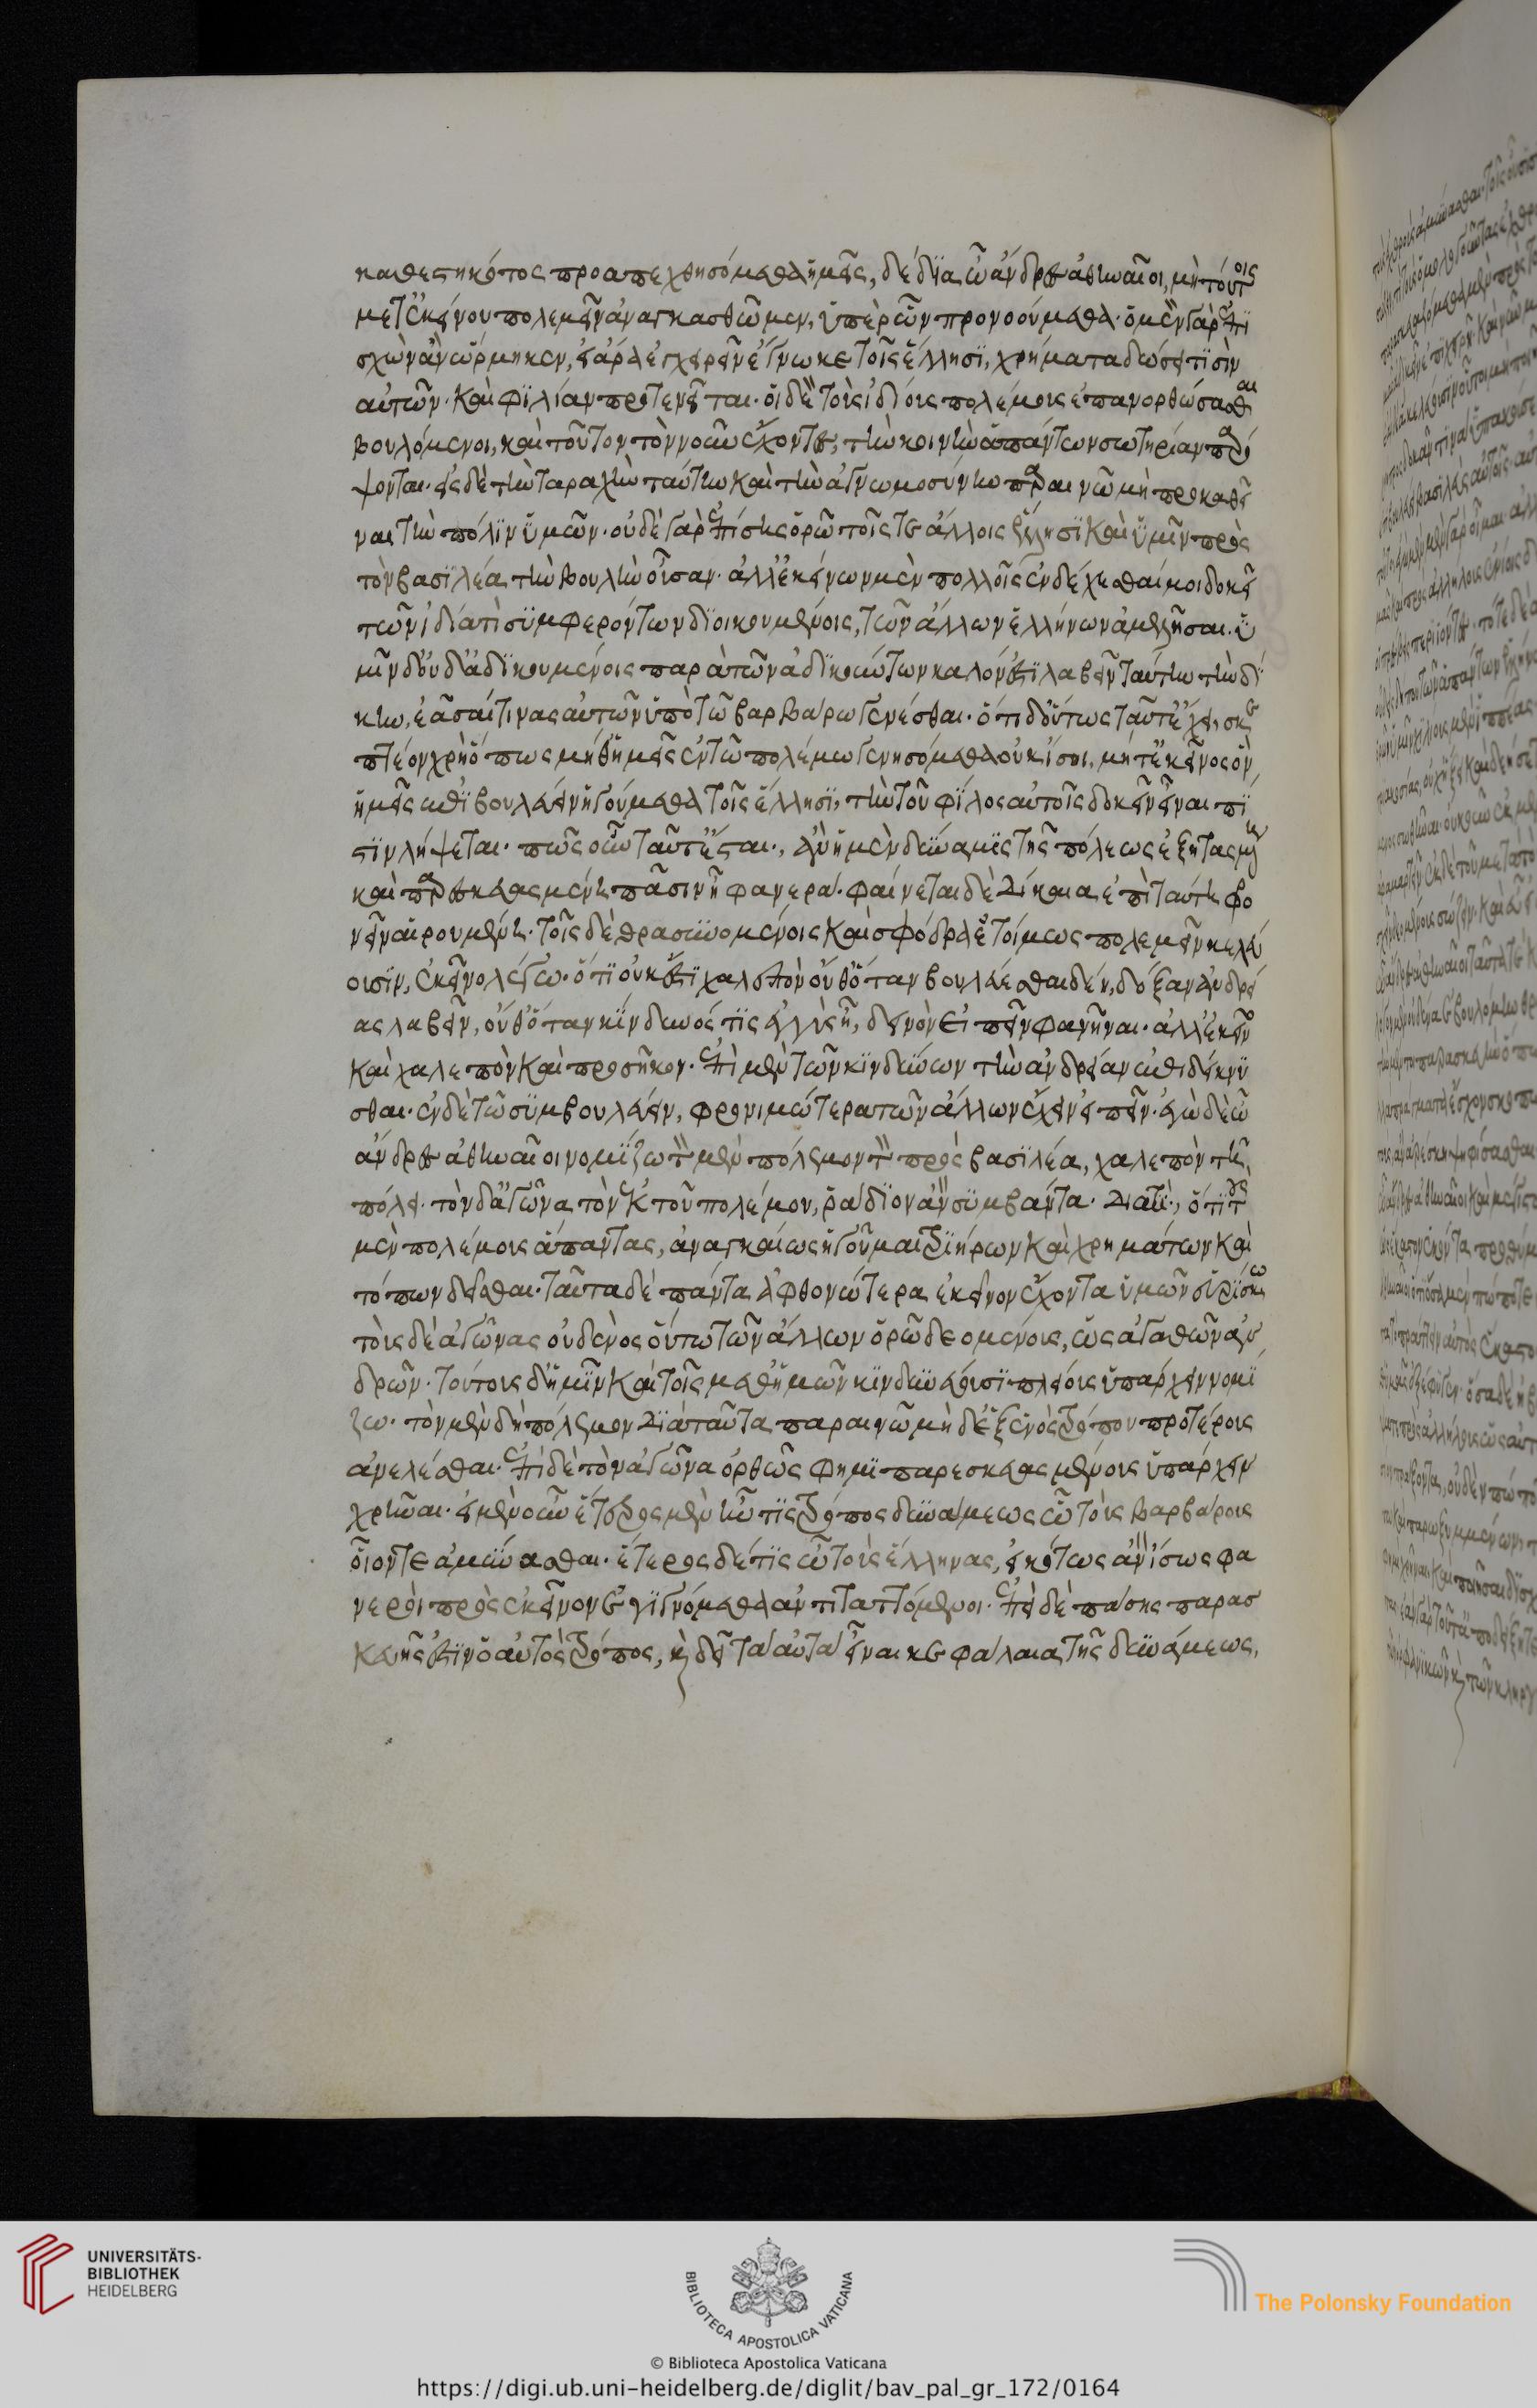 καθεστηκότος προαπεχθησόμεθα ἡμεῖς, δέδια ὦ ἄνδρες ἀθηναῖοι, μὴ τούτοις
μετ' ἐκείνου πολεμεῖν ἀναγκασθῶμεν, ὑπὲρ ὧν προνοούμεθα. ὁ μὲν γὰρ ἐπι
σχὼν ἂν ὥρμηκεν, εἰ ἄρα ἐγχειρεῖν ἔγνωκε τοῖς ἕλλησι, χρήματα δώσει τισὶν
αὐτῶν. καὶ φιλίαν προτενεῖται. οἱ δὲ τοὺς ἰδίους πολέμους ἐπανορθώσασθαι
βουλόμενοι, καὶ τοῦτον τὸν νοῦν ἔχοντες, τὴν κοινὴν ἁπάντων σωτηρίαν παρό
ψονται. εἰς δὲ τὴν ταραχὴν ταύτην καὶ τὴν ἀγνωμοσύνην παραινῶ μὴ προκαθεῖ
ναι τὴν πόλιν ὑμῶν. οὐδὲ γὰρ ἐπίσης ὁρῶ τοῖς τε ἄλλοις ἕλλησι καὶ ὑμῖν πρὸς
τὸν βασιλέα τὴν βουλὴν οὖσαν. ἀλλ' ἐκείνων μὲν πολλοῖς ἐνδέχεσθαί μοι δοκεῖ
τῶν ἰδίᾳ τι συμφερόντων διοικουμένοις, τῶν ἄλλων ἑλλήνων ἀμελῆσαι. ὑ
μῖν δ' οὐδ' ἀδικουμένοις παρὰ τῶν ἀδικούντων καλὸν ἐστι λαβεῖν ταύτην τὴν δί
κην, ἐᾶσαί τινας αὐτῶν ὑπὸ τῷ βαρβάρῳ γενέσθαι. ὅτι δ' οὕτως ταῦτ' ἔχει, σκε
πτέον χρὴ ὅπως μήθ' ἡμεῖς ἐν τῷ πολέμῳ γενησόμεθα οὐκ ἴσοι, μήτ' ἐκεῖνος ὃν
ἡμεῖς ἐπιβουλεύειν ἡγούμεθα τοῖς ἕλλησι, τὴν τοῦ φίλος αὐτοῖς δοκεῖν εἶναι πί
στιν λήψεται. πῶς οὖν ταῦτ' ἔσται., ἂν ἡ μὲν δύναμις τῆς πόλεως ἐξητασμένη
καὶ παρεσκευασμένη πᾶσιν ᾖ φανερά. φαίνεται δὲ δίκαια ἐπὶ ταύτῃ φο
νεῖν αἱρουμένη. τοῖς δὲ θρασυνομένοις καὶ σφόδρα ἑτοίμως πολεμεῖν κελεύ
ουσιν, ἐκεῖνο λέγω. ὅτι οὐκ ἔστι χαλεπὸν οὔθ' ὅταν βουλεύεσθαι δέῃ, δόξαν ἀνδρεί
ας λαβεῖν, οὔθ' ὅταν κίνδυνός τις ἐγγὺς ᾖ, δεινὸν εἰπεῖν φανῆναι. ἀλλ' ἐκεῖν
καὶ χαλεπὸν καὶ προσῆκον. ἐπὶ μὲν τῶν κινδύνων τὴν ἀνδρείαν ἐπιδείκνυ
σθαι. ἐν δὲ τῷ συμβουλεύειν, φρονιμώτερα τῶν ἄλλων ἔχειν εἰπεῖν. ἐγὼ δὲ ὦ
ἄνδρες ἀθηναῖοι νομίζω τὸν μὲν πόλεμον τὸν πρὸς βασιλέα, χαλεπὸν τῇ
πόλει. τὸν δ' ἀγῶνα τὸν ἐκ τοῦ πολέμου, ῥᾴδιον ἂν συμβάντα. διατί., ὅτι τοὺς
μὲν πολέμους ἅπαντας, ἀναγκαίως ἡγοῦμαι τριήρων καὶ χρημάτων καὶ
τόπων δεῖσθαι. ταῦτα δὲ πάντα ἀφθονώτερα ἐκεῖνον ἔχοντα ὑμῶν εὑρίσκω
τοὺς δὲ ἀγῶνας οὐδενὸς οὕτω τῶν ἄλλων ὁρῶ δεομένους, ὡς ἀγαθῶν ἀν
δρῶν. τούτους δ' ἡμῖν καὶ τοῖς μεθ' ἡμῶν κινδυνεύουσι πλείους ὑπάρχειν νομί
ζω. τὸν μὲν δὴ πόλεμον διὰ ταῦτα παραινῶ μὴ δ' ἐξ ἑνὸς τρόπου προτέρους
ἀνελέσθαι. ἐπὶ δὲ τὸν ἀγῶνα ὀρθῶς φημι παρεσκευασμένους ὑπάρχειν
χρῆναι. εἰ μὲν οὖν ἕτερος μὲν ἦν τις τρόπος δυνάμεως ὧ τοὺς βαρβάρους
οἷον τε ἀμύνασθαι. ἕτερος δέ τις ὧ τοὺς ἕλληνας, εἰκότως ἂν ἴσως φα
νεροὶ πρὸς ἐκεῖνον ἐγιγνόμεθα ἀντιταττόμενοι. ἐπεὶ δὲ πάσης παρασ
κευῆς ἐστὶν ὁ αὐτὸς τρόπος, καὶ δεῖ τὰ αὐτὰ εἶναι κεφάλαια τῆς δυνάμεως,
UNIVERSITÄTS-
BIBLIOTHEK
HEIDELBERG
BIBLIOTECA APOSTOLICA VATICANA
The Polonsky Foundation
© Biblioteca Apostolica Vaticana
https://digi.ub.uni-heidelberg.de/diglit/bav_pal_gr_172/0164